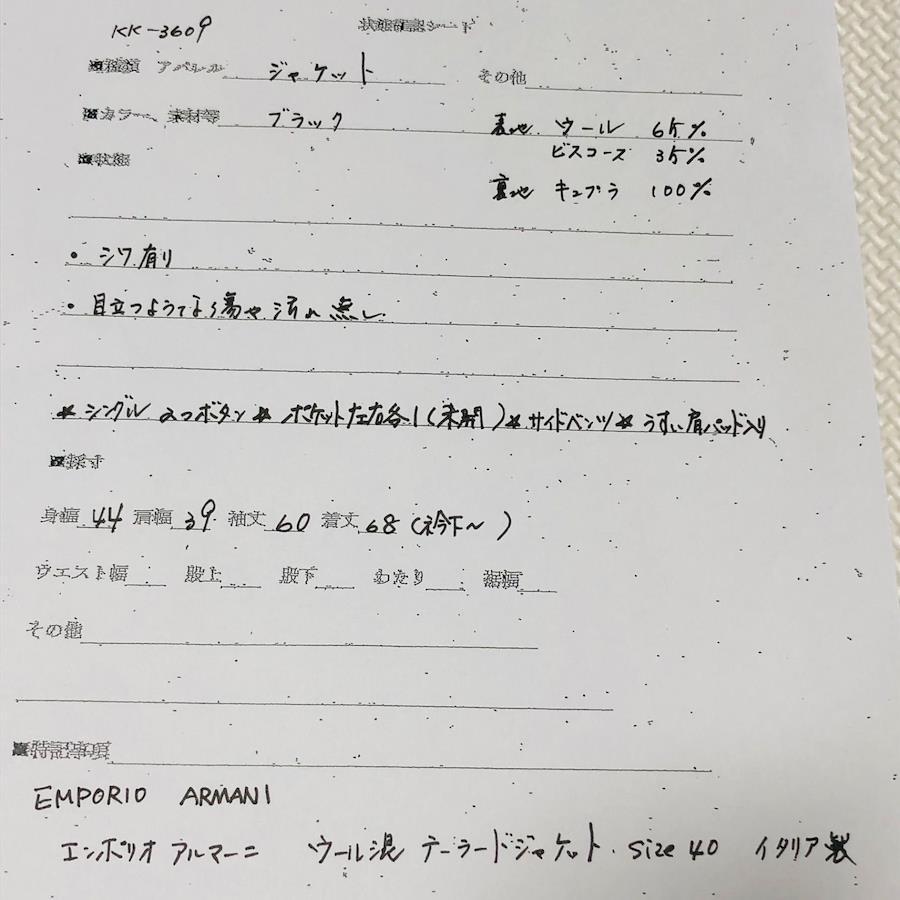 KK-3609
状態確認シート
■種類 アパレル ジャケット その他
■カラー、素材等 ブラック 表地 ウール 65%
ビスコース 35%
■状態
裏地 キュプラ 100%
・シワ有り
・目立つようなキズや汚れ無し
★シングル 2つボタン★ ポケット左右各1(未開)★サイドベンツ★うすい肩パッド入り
■採寸
身幅 44 肩幅 39 袖丈 60 着丈 68(衿下〜)
ウエスト幅 股上 股下 わたり 裾幅
その他
■特記事項
EMPORIO ARMANI
エンポリオ アルマーニ ウール混 テーラードジャケット. size 40 イタリア製